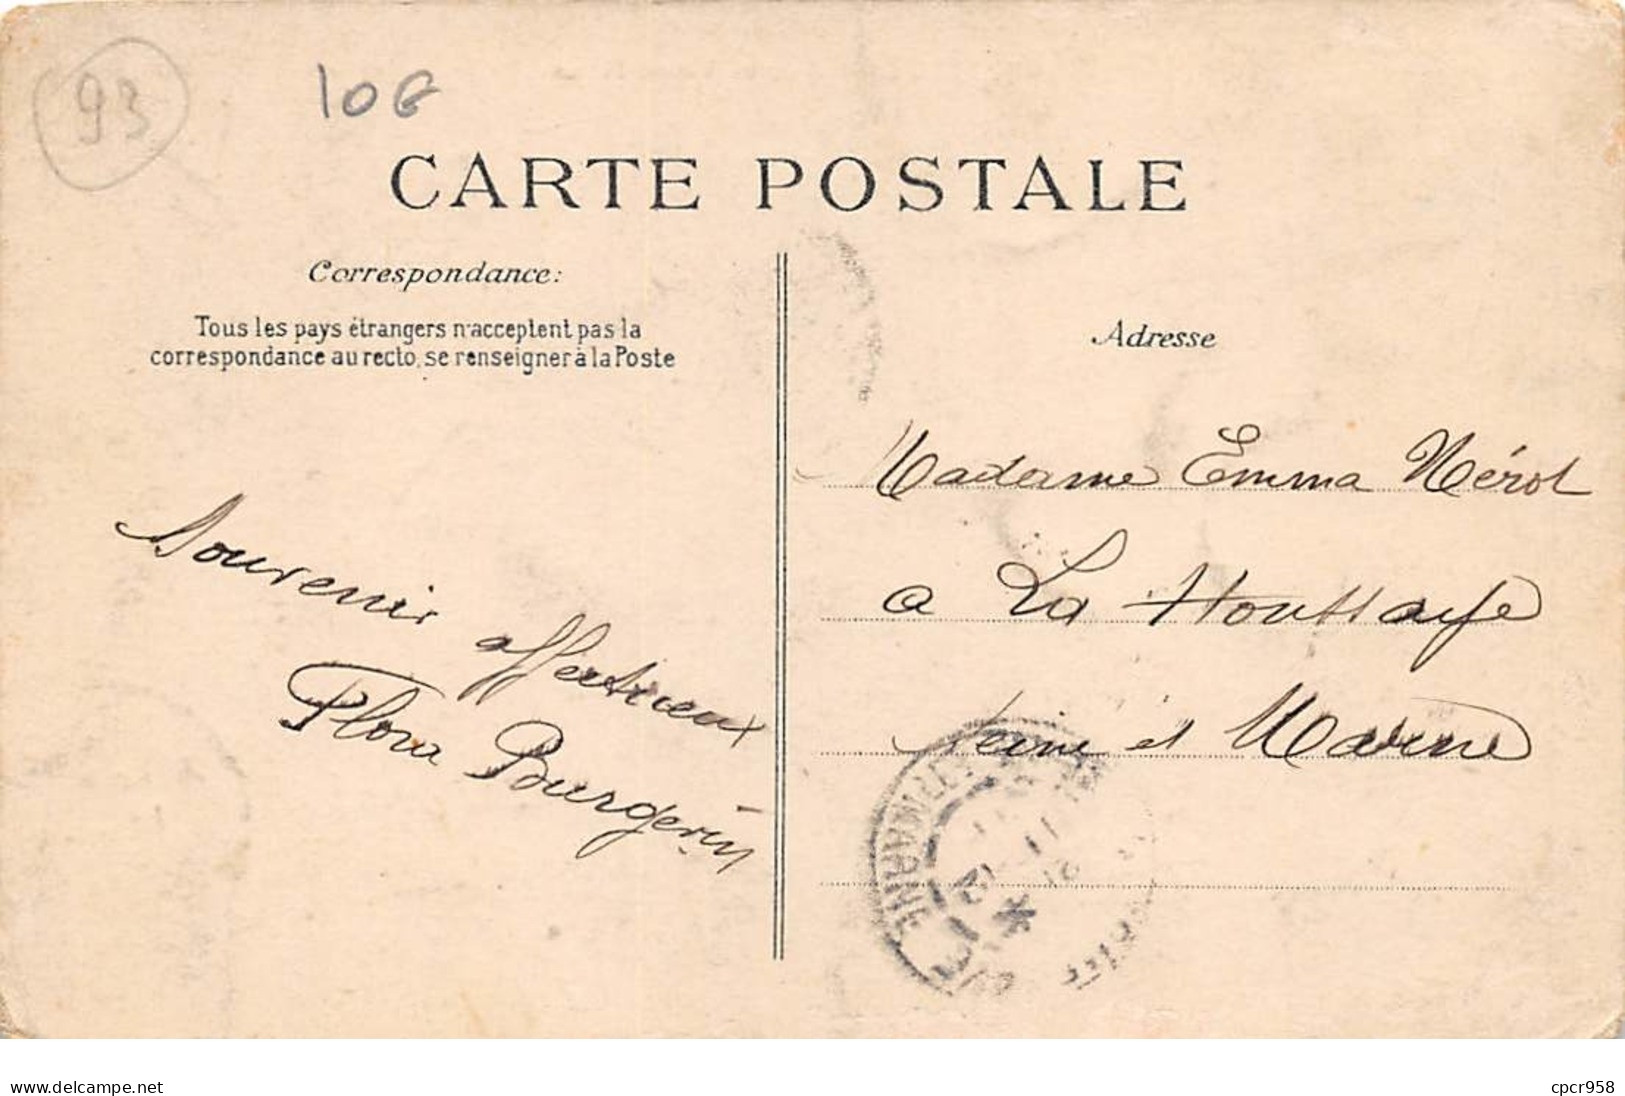 93
10€
CARTE POSTALE
Correspondance:
Tous les pays étrangers n'acceptent pas la
correspondance au recto, se renseigner à la Poste
Souvenir
affectueux
Flora Bourgerin
Adresse
Madame Emma Nérot
a La Houssaye
Seine et Marne
MARNE
www.delcampe.net
cpcr958